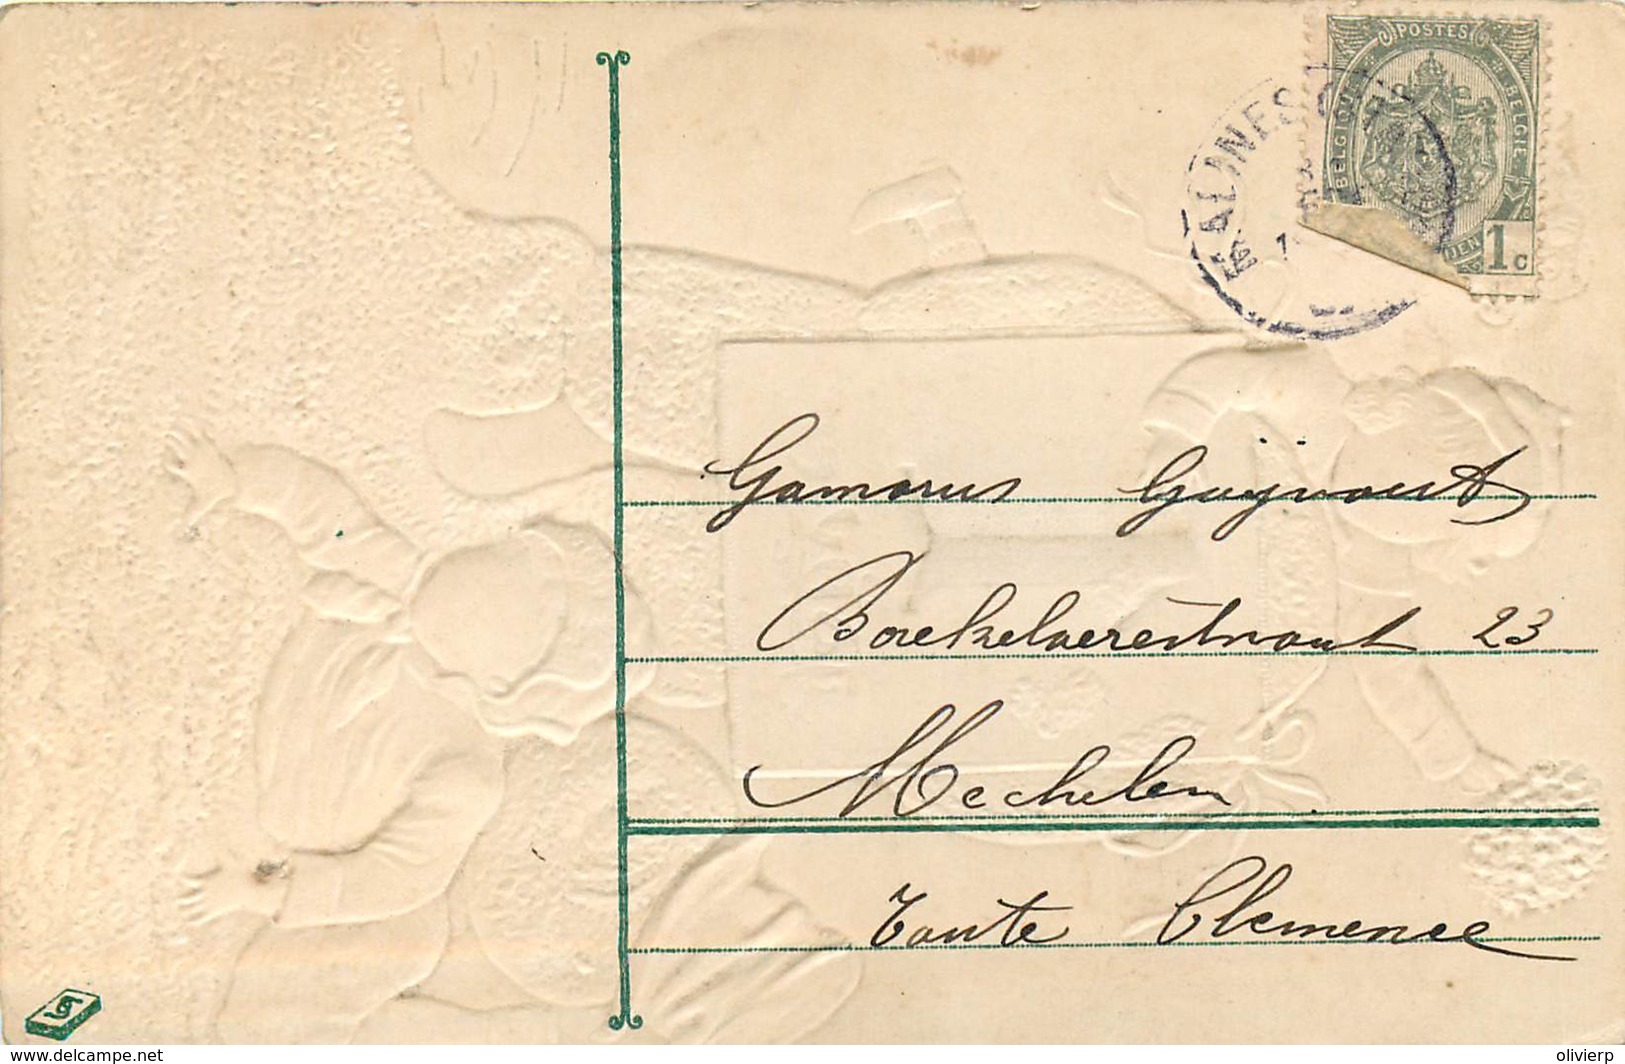 POSTES
BELGIQUE
BELGIE
DEN 1c
MALINES
Gomarus Guijvaert
Boekelaerestraat 23
Mechelen
Tante Clemence
www.delcampe.net
olivierp